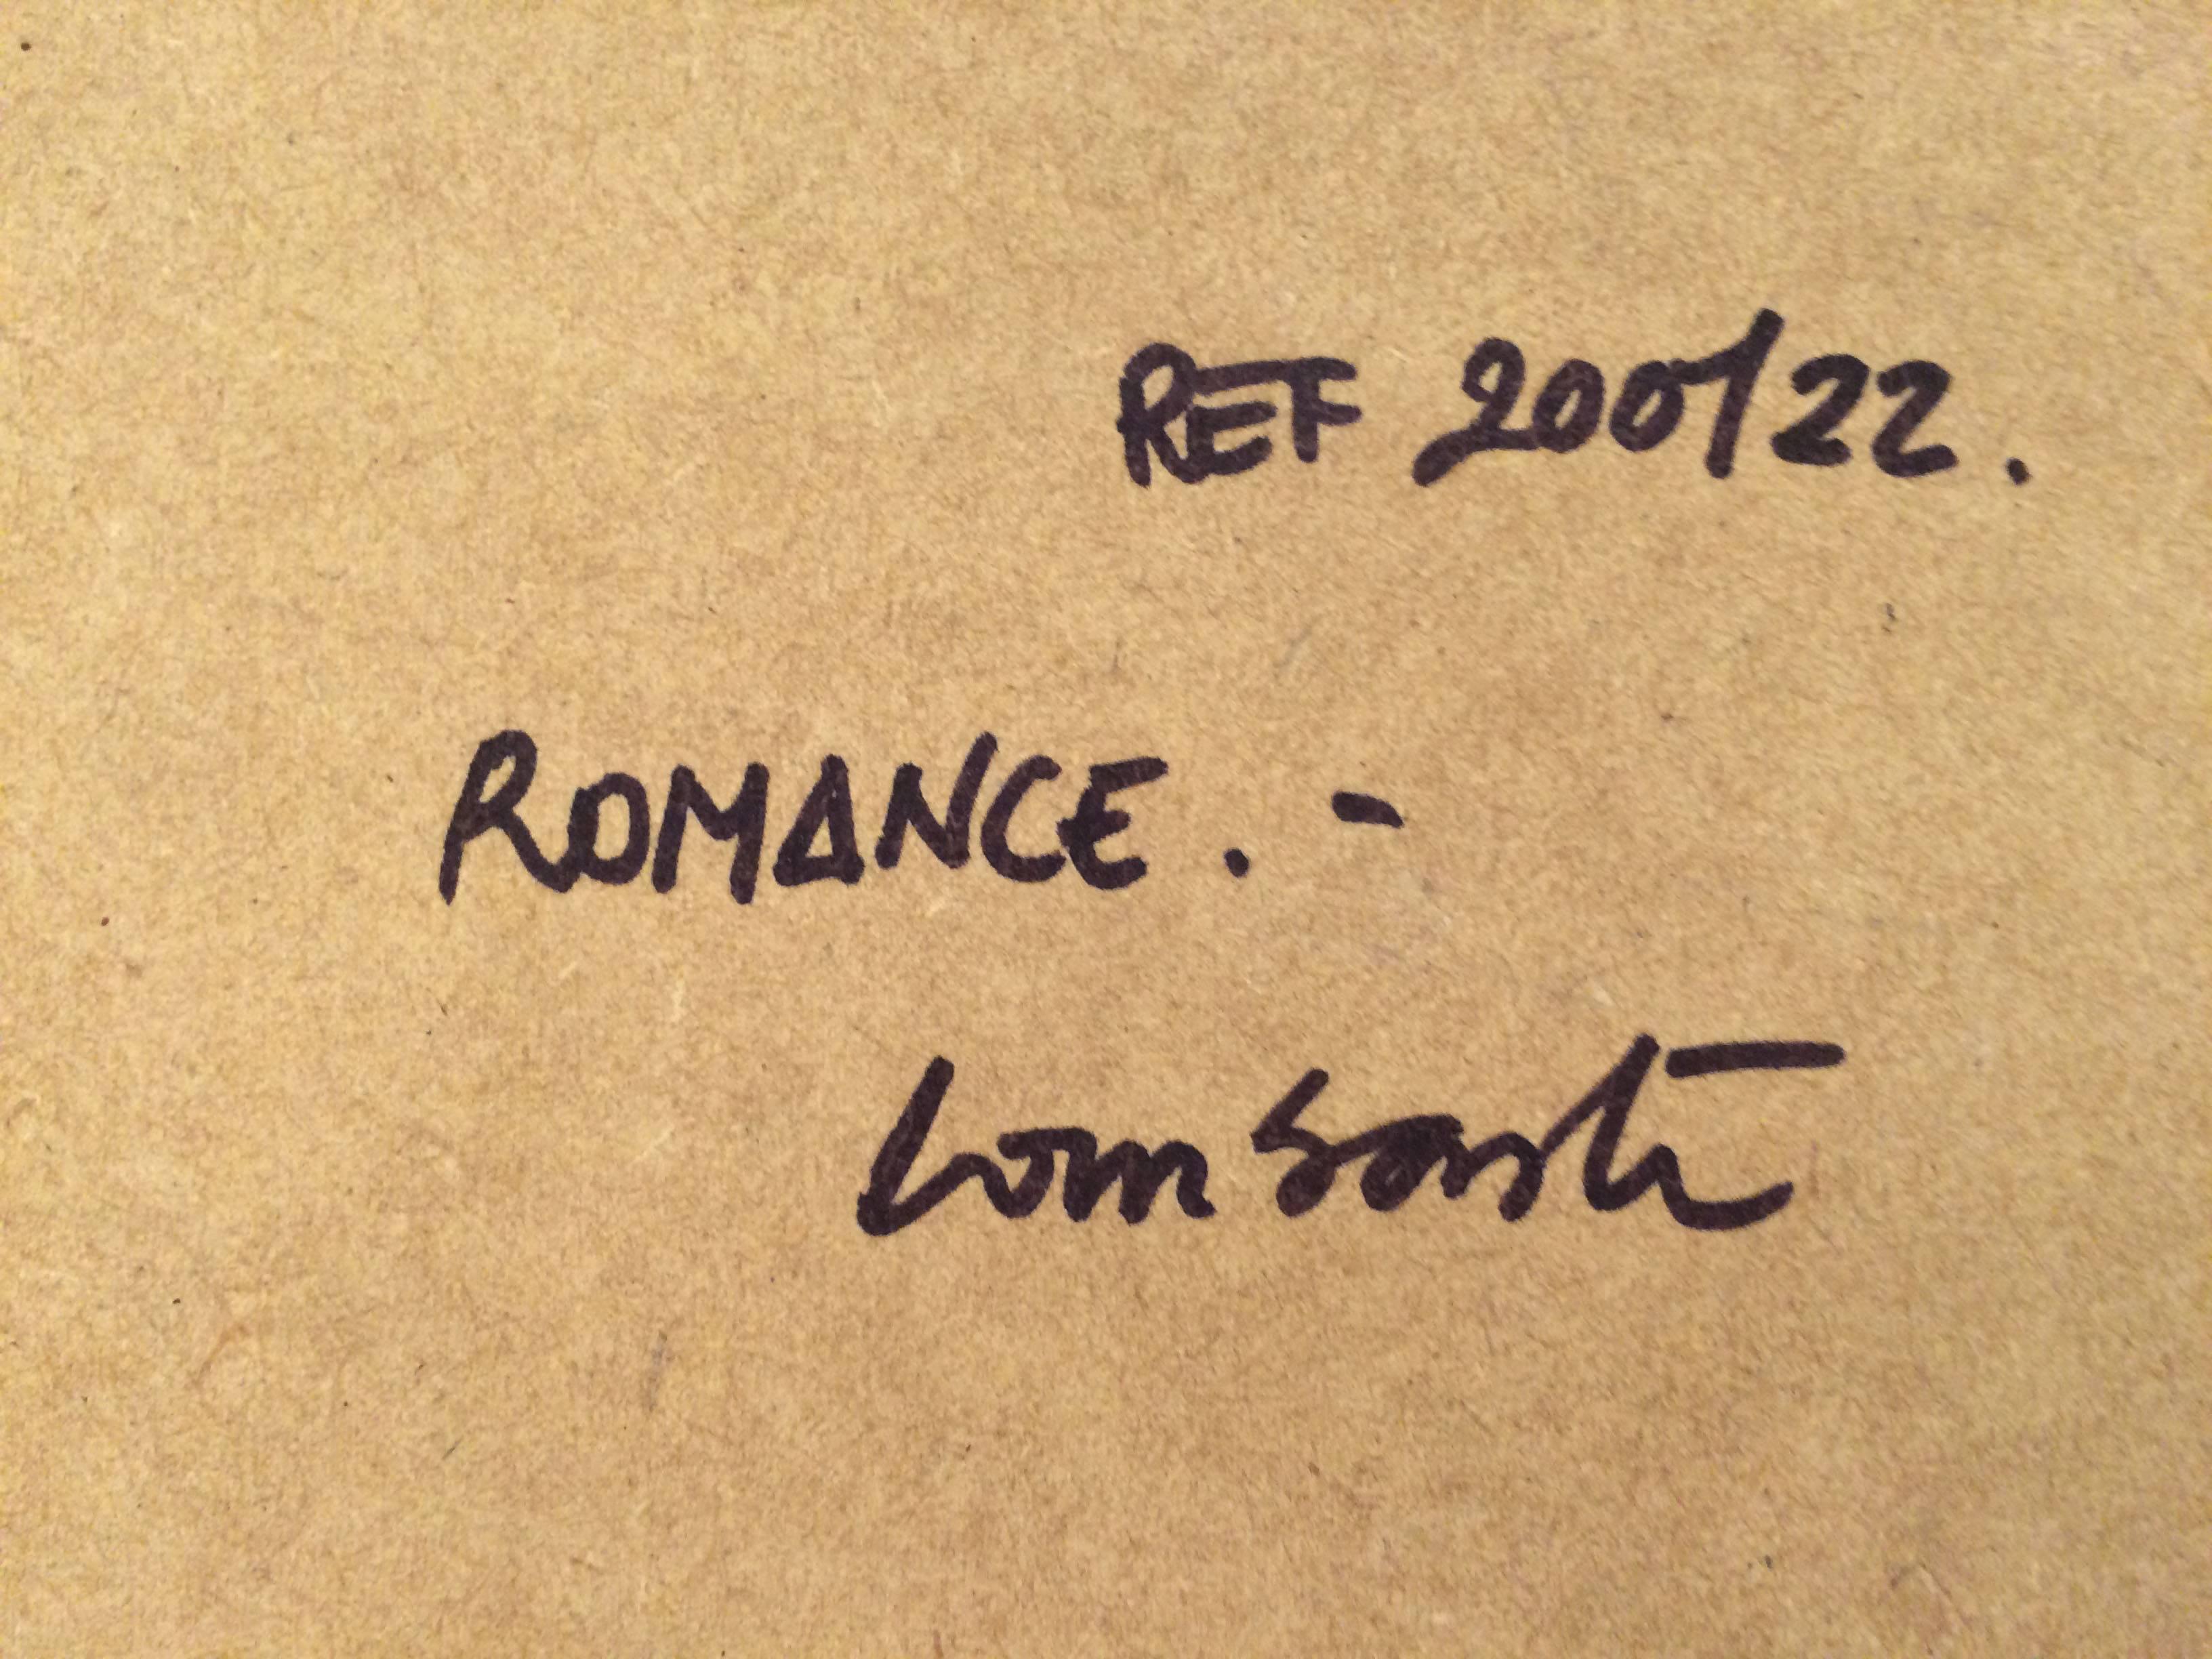 REF 200/22.
ROMANCE. -